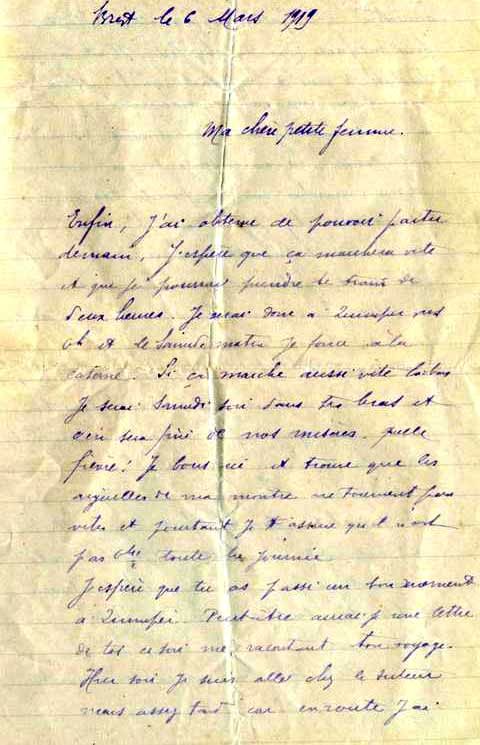 Brest le 6 Mars 1919
Ma chère petite femme.
Enfin, j'ai obtenu de pouvoir partir
demain, J'espère que ça marchera vite
et que je pourrai prendre le train de
deux heures. Je serai donc à Quimper vers
6h et le samedi matin je fonce à la
caserne. Si ça marche aussi vite là bas
Je serai samedi soir dans tes bras et
ce sera fini de nos misères. quelle
fièvre! Je bous ici et trouve que les
aiguilles de ma montre ne tournent pas
vite et pourtant je t'assure qu'il n'est
pas toute la journée
J'espère que tu as passé un bon moment
à Quimper. Peut-être aurai-je une lettre
de toi ce soir me racontant ton voyage.
Hier soir je suis allé chez le
mais assez tard car en route j'ai